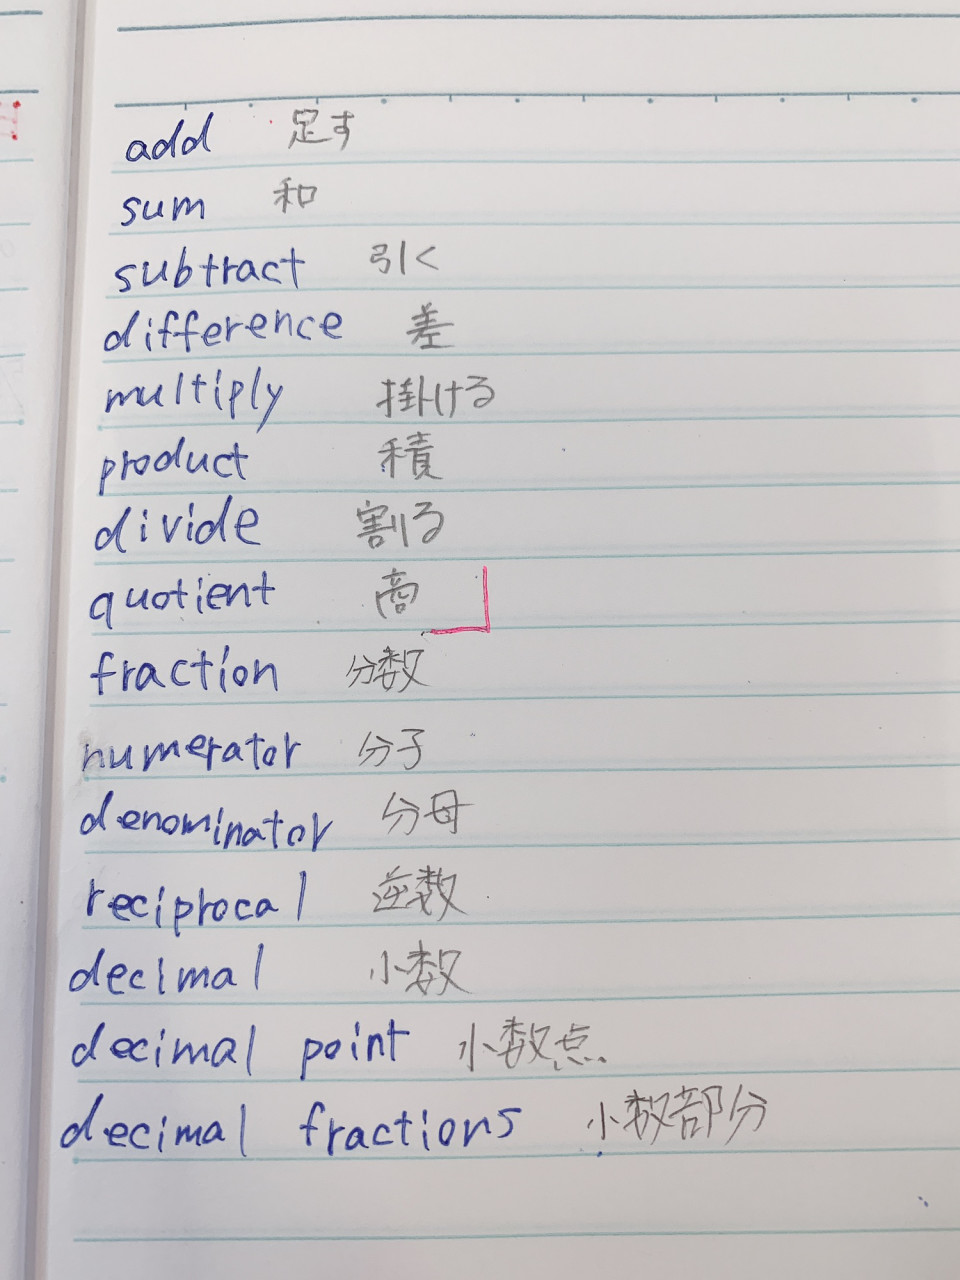 add 足す
sum 和
subtract 引く
difference 差
multiply 掛ける
product 積
divide 割る
quotient 商
fraction 分数
numerator 分子
denominator 分母
reciprocal 逆数
decimal 小数
decimal point 小数点
decimal fractions 小数部分